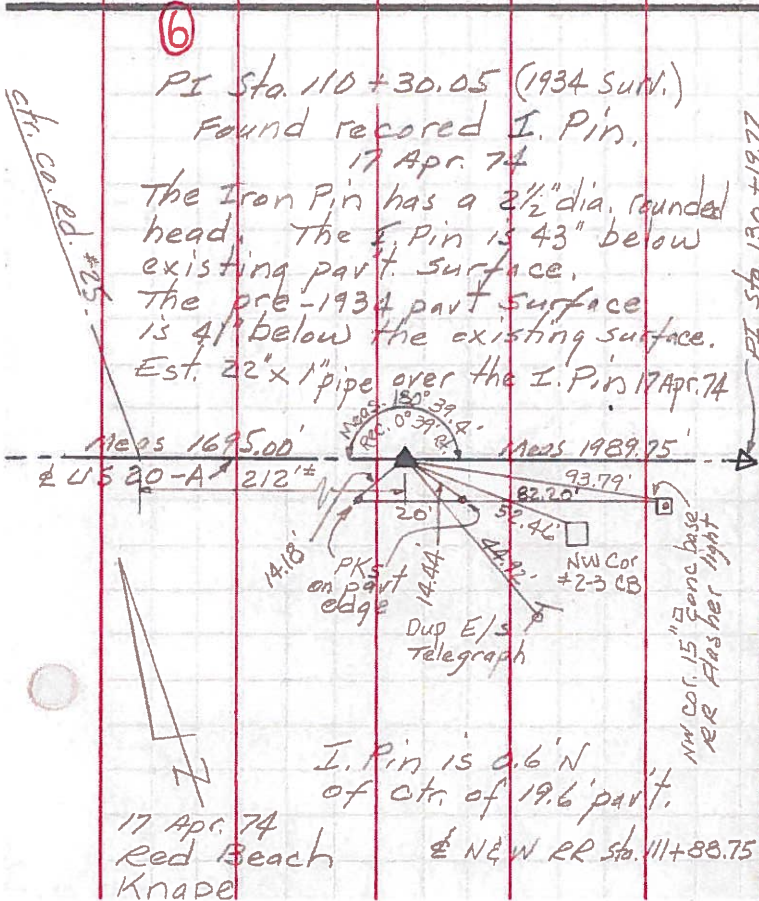 6
PI Sta. 110+30.05 (1934 Surv.)
Found recored I. Pin.
17 Apr. 74
The Iron Pin has a 2½" dia. rounded
head. The I. Pin is 43" below
existing pav't. surface.
The pre-1934 pav't surface
is 41" below the existing surface.
Est. 22" x 1" pipe over the I. Pin 17 Apr. 74
ctr. co. rd. #25
PI Sta 130+19.77
Meas. 180° 39.4'
Rec. 0° 39' Rt.
Meas 1695.00'
Meas 1989.75'
℄ US 20-A
212'±
93.79'
82.20'
20'
52.46'
14.18'
PKs
on pav't
edge
14.44'
44.92'
NW Cor
#2-3 CB
Dup E/S
Telegraph
NW Cor. 15"□ conc base
RR flasher light
I. Pin is 0.6' N
of ctr. of 19.6' pav't.
17 Apr. 74
Red Beach
Knape
℄ N&W RR Sta. 111+88.75